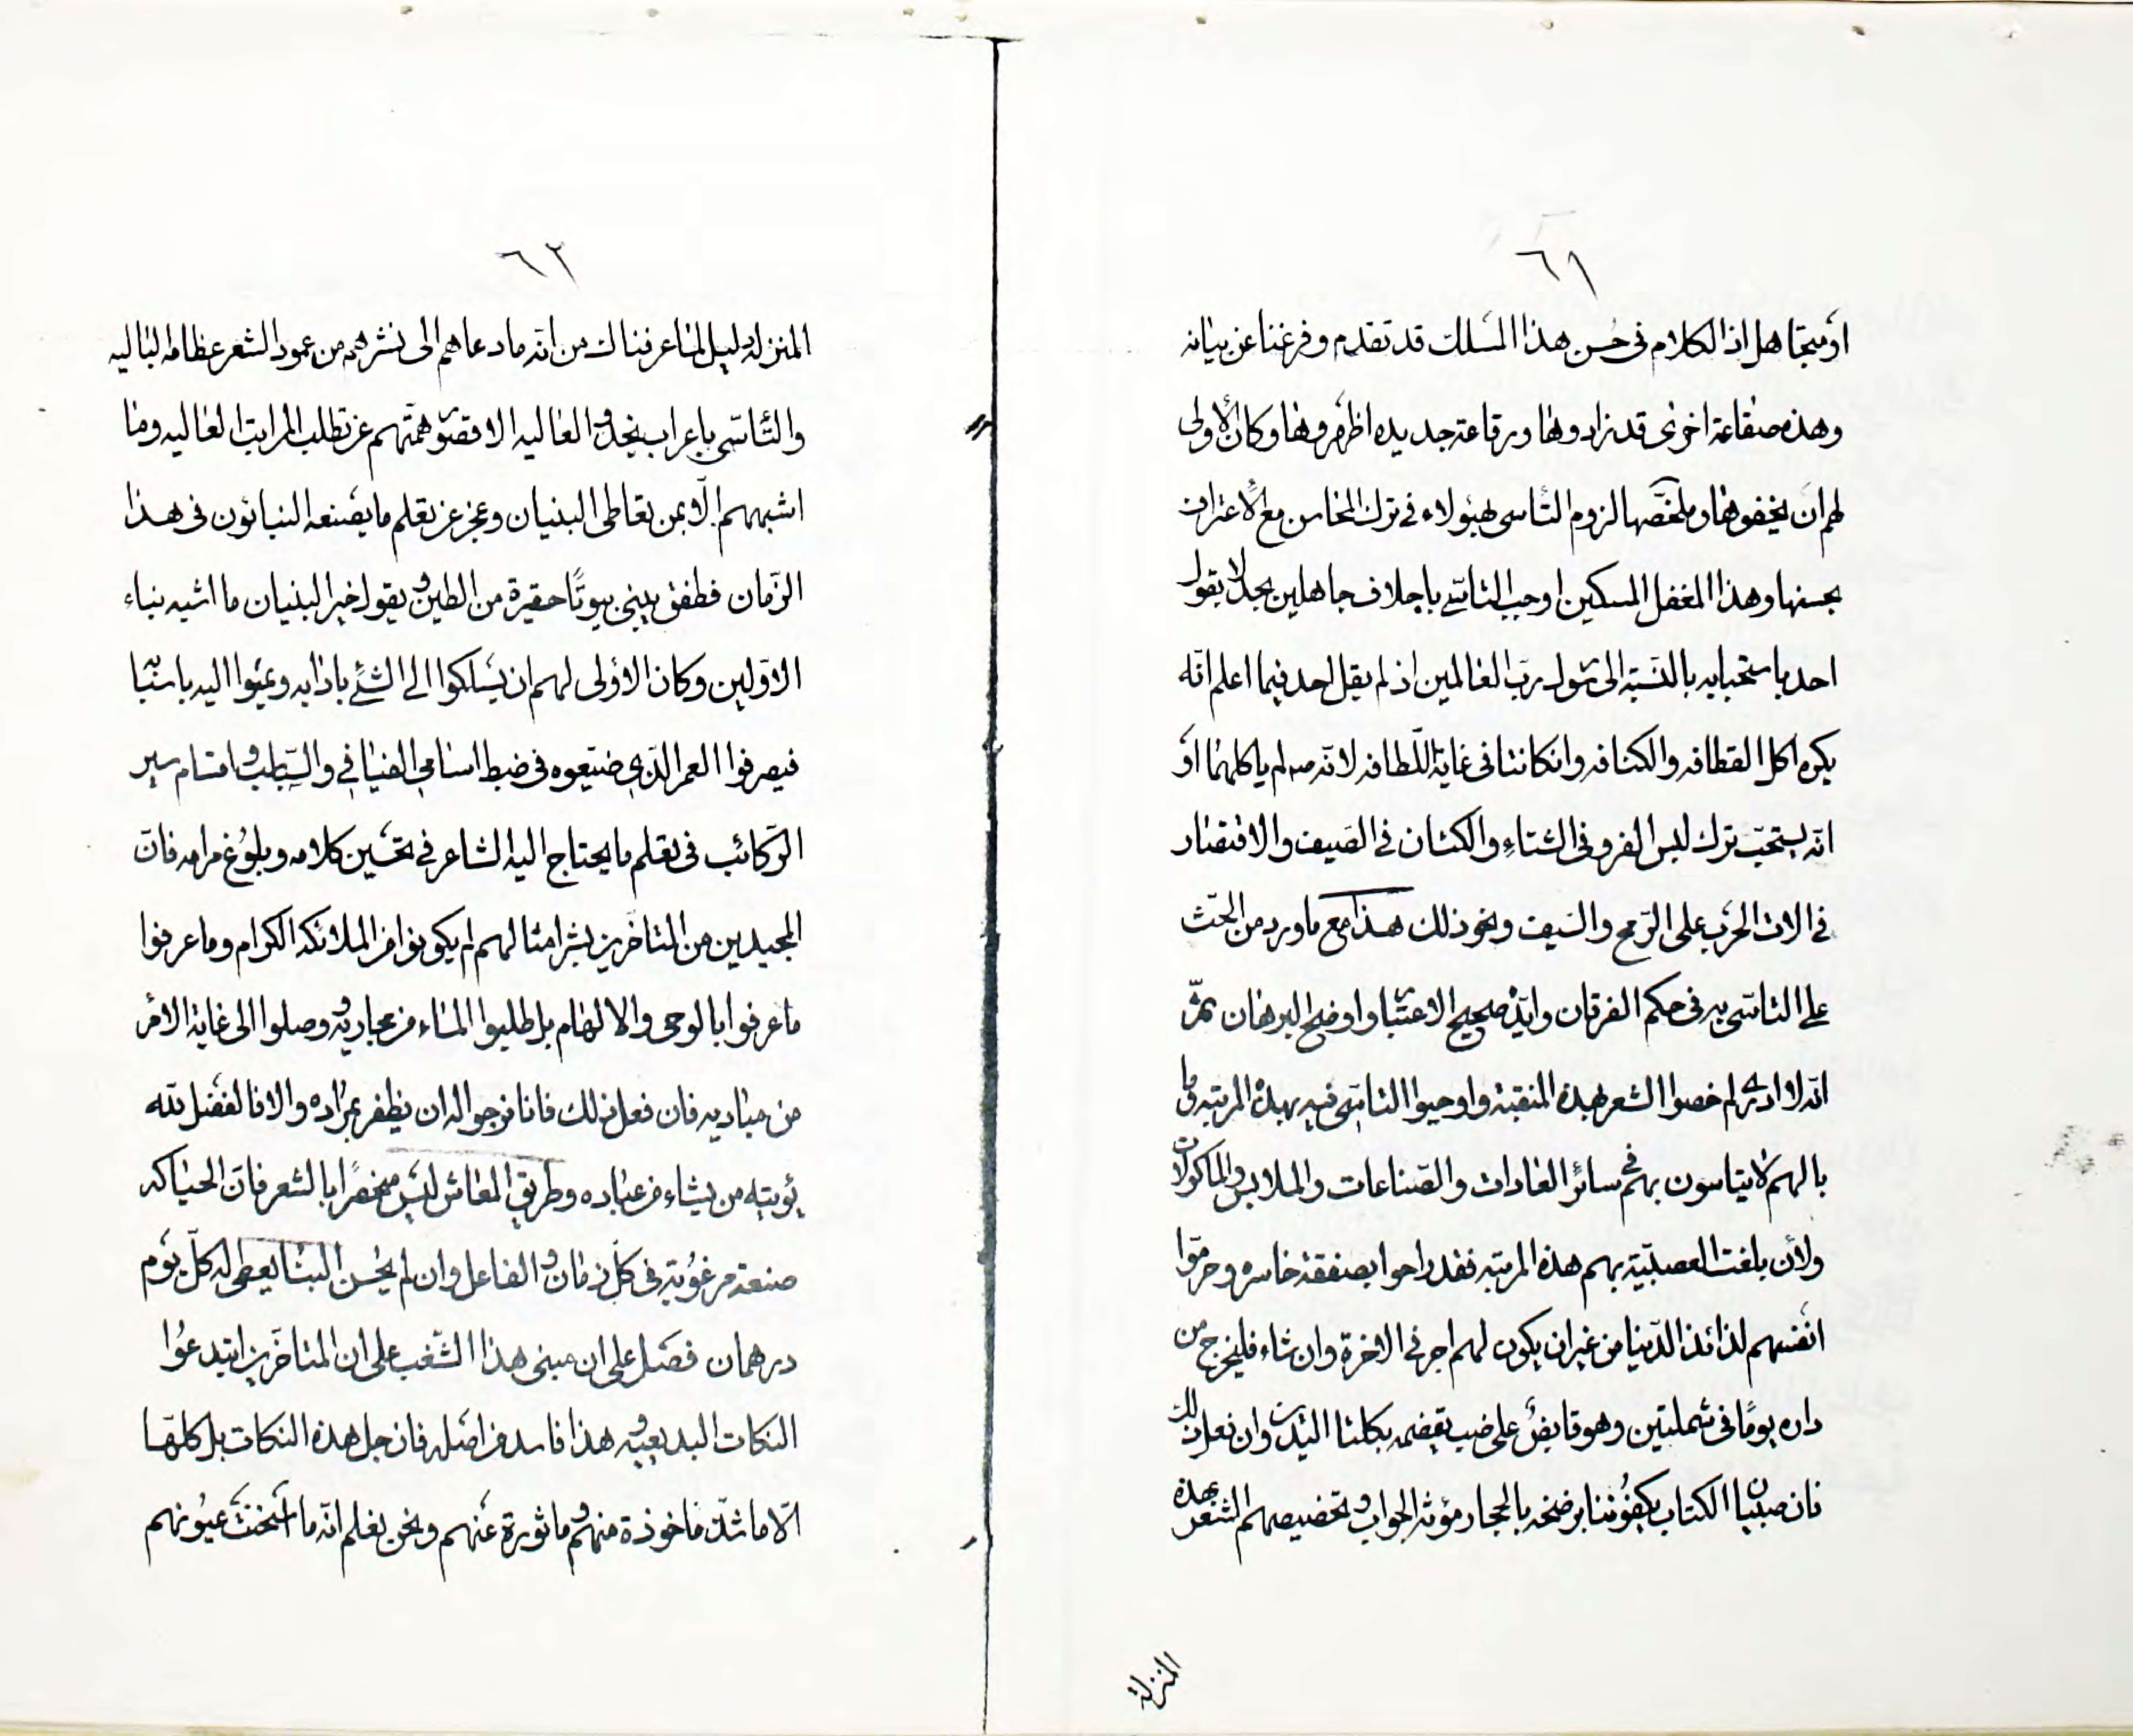 ٦١
او متجاهل اذ الكلام فى حُسن هذا المسلك قد تقدم وفرغنا عن بيانه
وهذه صقاعة اخرى قد زادوها ورقاعة جديده اظهروها وكان الاولى
لهم ان يخفوها وملخّصها لزوم التأسى بهؤلاء فى ترك المحاسن مع الاعتراف
بحسنها وهذا المغفل المسكين اوجب التأسّى باجلاف جاهلين بحد لا يقول
احد باستحبابه بالنسبة الى رسول ربّ العالمين اذ لم يقل احد فيما اعلم انّه
يكره اكل القطافه والكنافه وان كانتا فى غاية اللّطافه لانّه صه لم ياكلهما اَو
انّه يستحبّ ترك لبس الفرو فى الشتاءِ والكتان فى الصَيف والاقتصار
فى الات الحَرْب على الرّمح والسَيف ونحو ذلك هذا مع ما ورد من الحَثّ
على التاسّى به فى محكم الفرقان وايّده صحيح الاعتبار واوضح البرهان ثمّ
انّه لا ادرى لم خصوا الشعر بهذه المنقبة واوجبوا التاسّى فيه بهذه المرتبه وما
بالهم لا يتاسون بهم فى سائر العادات والصّناعات والملابس والماكولات
ولأن بلغت العصبيّة بهم هذه المرتبه فقد راحوا بصفقة خاسره وحرمّوا
انفسهم لذائذ الدّنيا من غير ان يكون لهم اجر فى الاخرة وان شاء فليخرج من
داره يومًا فى شملتين وهو قابضٌ على ضب يقضمه بكلتا اليدين وان فعل ذلك
فان صبيان الكتاب يكفوننا برضخه بالحجار مؤنة الجواب وتخصيصهم الشعر بهذه
المنزلة
٦٢
المنزلة دليل لما عرفناك من انّه ما دعاهم الى نشرهم من عمود الشعر عظامه الباليه
والتّأسّى باعراب نجد والعاليه الا قصور همّتهم عن تطلب المراتب العاليه وما
اشبههم الّا بمن تعاطى البنيان وعجز عن تعلم ما يصنعه البنائون فى هذا
الزّمان فطفق يبنى بيوتًا حقيرة من الطين ويقول خير البنيان ما اشبه بناء
الاوّلين وكان الاَولى لهم ان يسلكوا الى الشئ باذابه وعيّوا اليه باسبابه
فيصرفوا العمر الّذى ضيّعوه فى ضبط اسامى الفيافى والسّباسب واقسام سير
الرّكائب فى تعلم ما يحتاج اليه الشاعر فى تحسَين كلامه وبلوُغ مرامه فانّ
المجيدين من المتاخّرين بشر امثالهم لم يكونوا من الملائكه الكرام وما عرفوا
ما عرفوا بالوحى والالهام بل طلبوا الماء من مجاريه ووصلوا الى غاية الامْر
من مباديه فان فعل ذلك فانا نرجو اله ان يظفر بمراده والا فالفضل للّه
يؤتيه من يشاء من عباده وطريق المعاش ليس منحصرًا بالشعر فانّ الحياكه
صنعة مرغوُبة فى كلّ زمان والفاعل وان لم يُحسن البناء يعطى له كلّ يَوم
درهمان فصَل على ان مبنى هذا الشغب على ان المتاخّرين ابتدعُوا
النكات البديعيه وهذا فاسد من اصَله فان جل هذه النكات بل كلهّا
الّا ما شذّ ماخوذة منهم وماثورة عَنهم ونحن نعلم انّه ما اَسَخنَتْ عيُونهم